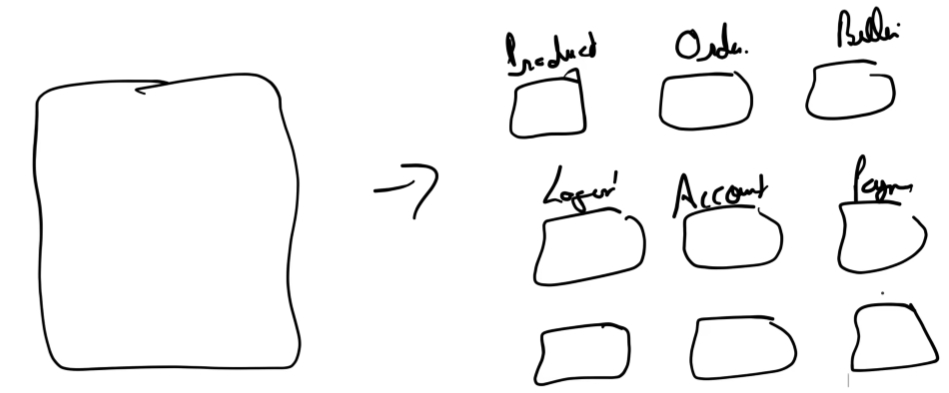 Product Order. Billi
Login Account Paym